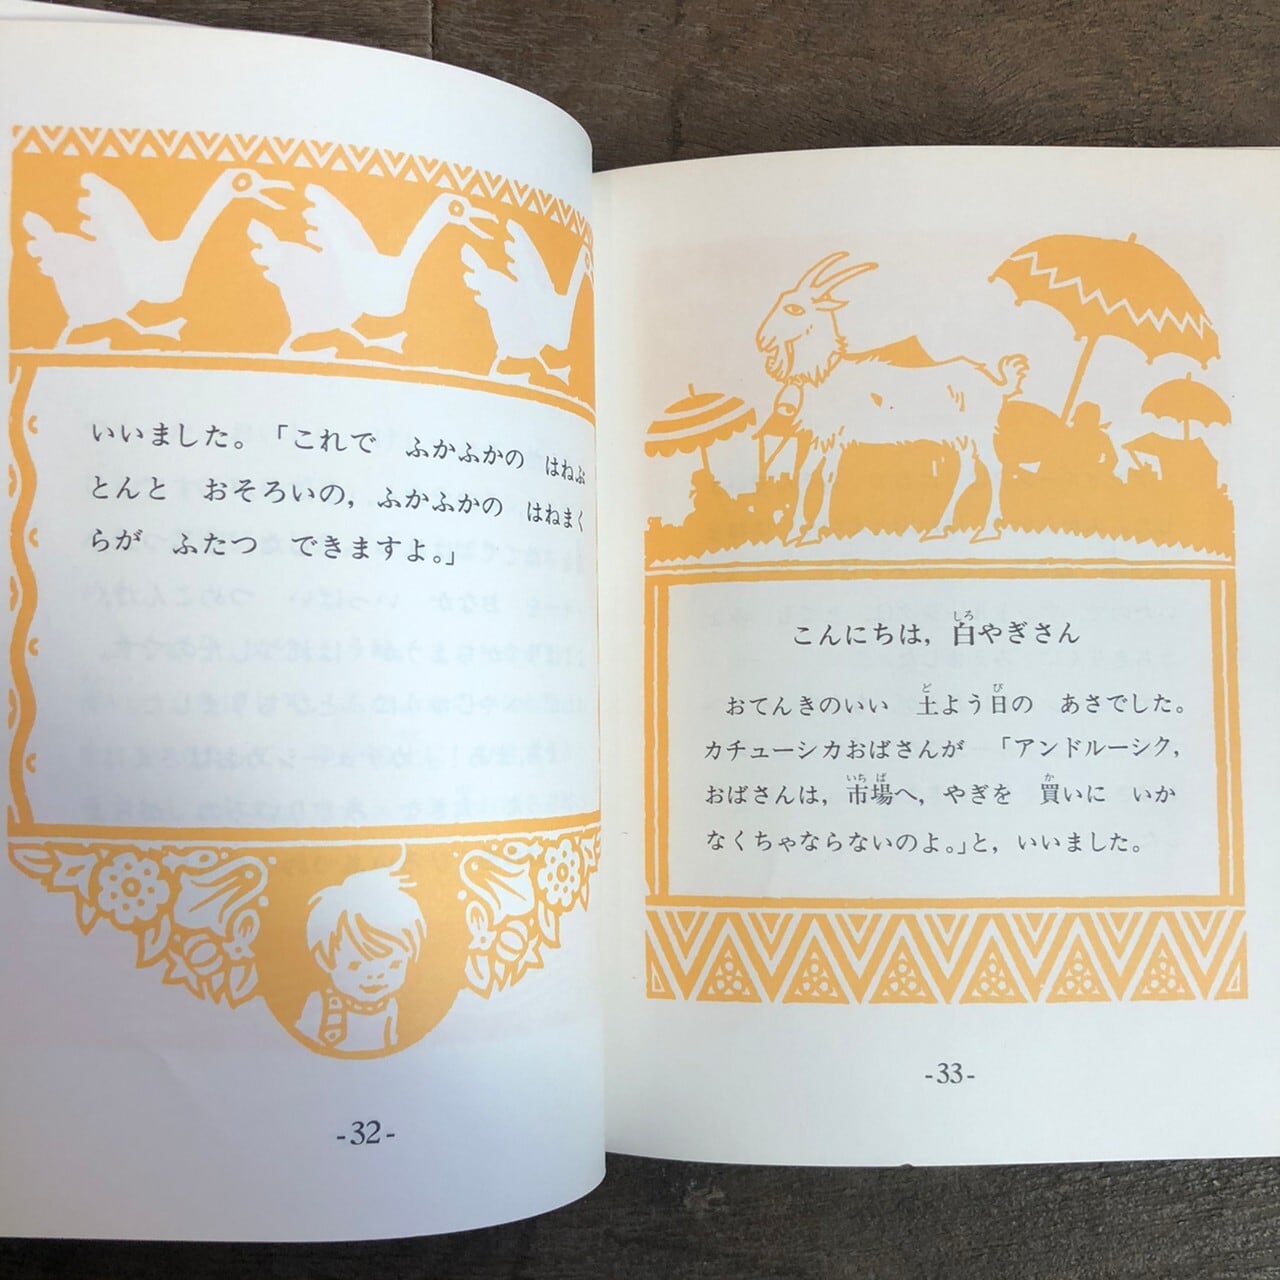 いいました。「これで　ふかふかの　はねぶ
とんと　おそろいの，ふかふかの　はねまく
らが　ふたつ　できますよ。」
-32-
こんにちは，白やぎさん
おてんきのいい　土よう日の　あさでした。
カチューシカおばさんが　「アンドルーシク，
おばさんは，市場へ，やぎを　買いに　いか
なくちゃならないのよ。」と，いいました。
-33-